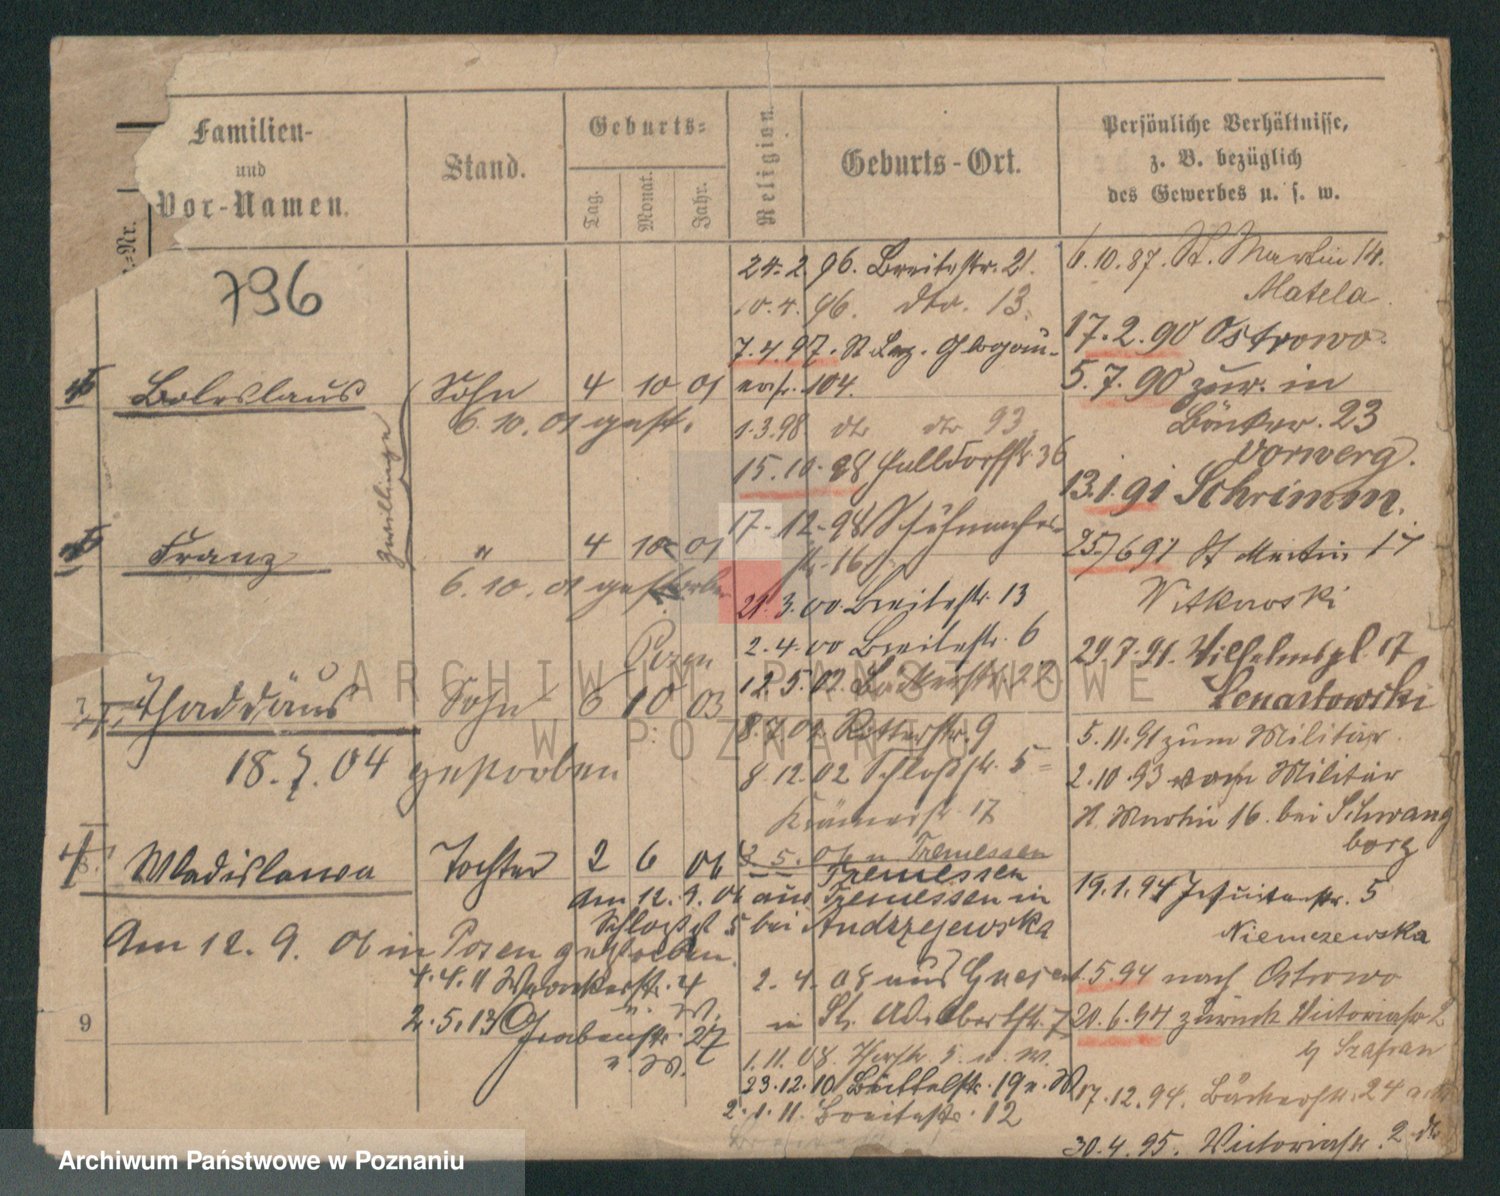 Familien-
und
Vor-Namen.
Stand.
Geburts-
Tag.
Monat.
Jahr.
Religion.
Geburts-Ort.
Persönliche Verhältnisse,
z. B. bezüglich
des Gewerbes u. s. w.
-Nr.
796
Boleslaus Sohn 4 10 01
6. 10. 01 gest.
Zwillinge
Franz " 4 10 01
6. 10. 01 gestorben
Posen
7 Thaddäus Sohn 6 10 03
18. 7. 04 gestorben
8 Wladislawa Tochter 2 6 06
Am 12. 9. 06 in Posen gestorben.
4. 4. 11 Wronkerstr. 4
u. W.
2. 5. 13 Grabenstr. 27
u. W.
9
24. 2. 96. Breitestr. 21.
10. 4. 96. dto. 13.
7. 4. 97. St. Laz. Glogau-
erstr. 104.
1. 3. 98 dto dto 93
15. 10. 98 Halldorffstr. 36
17. 12. 98 Schuhmacher-
str. 16
21. 3. 00. Breitestr. 13
2. 4. 00 Breitestr. 6
12. 5. 02 Bäckerstr. 22
8. 7. 02 Ritterstr. 9
8. 12. 02 Schloßstr. 5
Krämerstr. 17
2. 5. 06 n Tremessen
Tremessen
Am 12. 9. 06 aus Tremessen in
Schloßst 5 bei Andrzejewska
2. 4. 08 aus Gnesen
in St. Adalbertstr. 7
1. 11. 08. 5. u. W.
23. 12. 10 Büttelstr. 19 u. W
2. 1. 11. Breitestr. 12
6. 10. 87. St. Martin 14.
Matela
17. 2. 90 Ostrowo.
5. 7. 90 zur. in
Bäcker. 23
Vorwerg.
13. 1. 91 Schrimm.
25/6 91 St Martin 17
Witkowski
29. 7. 91. Wilhelmspl. 17
Lenartowski
5. 11. 91 zum Militär.
2. 10. 93 vom Militär
St. Martin 16. bei Schwang
borg
19. 1. 94 Jesuitenstr. 5
Niemczewska
1. 5. 94 nach Ostrowo
20. 6. 94 zurück Victoriastr 2
b/ Szafran
17. 12. 94. Bäckerstr. 24
30. 4. 95. Victoriastr. 2 dto
ARCHIWUM PAŃSTWOWE
W POZNANIU
Archiwum Państwowe w Poznaniu